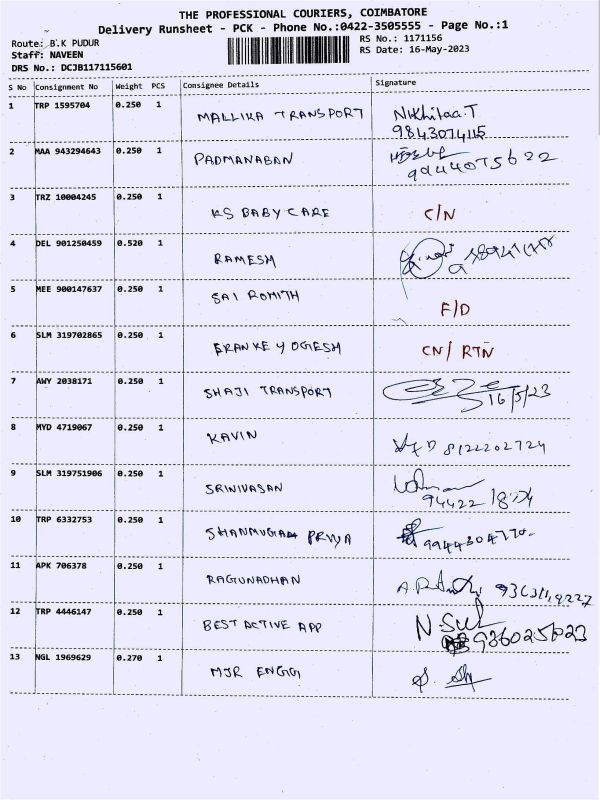 THE PROFESSIONAL COURIERS, COIMBATORE
Delivery Runsheet - PCK - Phone No.:0422-3505555 - Page No.:1
Route: B.K PUDUR
RS No.: 1171156
Staff: NAVEEN
RS Date: 16-May-2023
DRS No.: DCJB117115601
S No Consignment No Weight PCS Consignee Details Signature
1 TRP 1595704 0.250 1 MALLIKA TRANSPORT Nikhilaa.T
9843074115
2 MAA 943294643 0.250 1 PADMANABAN
9944075622
3 TRZ 10004245 0.250 1 KS BABY CARE C/N
4 DEL 901250459 0.520 1 RAMESH
5 MEE 900147637 0.250 1 SAI ROHITH F/D
6 SLM 319702865 0.250 1 YOGESH CN/ RTN
7 AWY 2038171 0.250 1 SHAJI TRANSPORT 16/5/23
8 MYD 4719067 0.250 1 KAVIN 8122202724
9 SLM 319751906 0.250 1 SRINIVASAN
94422
10 TRP 6332753 0.250 1 SHANMUGA PRIYA
11 APK 706378 0.250 1 RAGUNADHAN
12 TRP 4446147 0.250 1 BEST ACTIVE APP
13 NGL 1969629 0.270 1 MJR ENGG